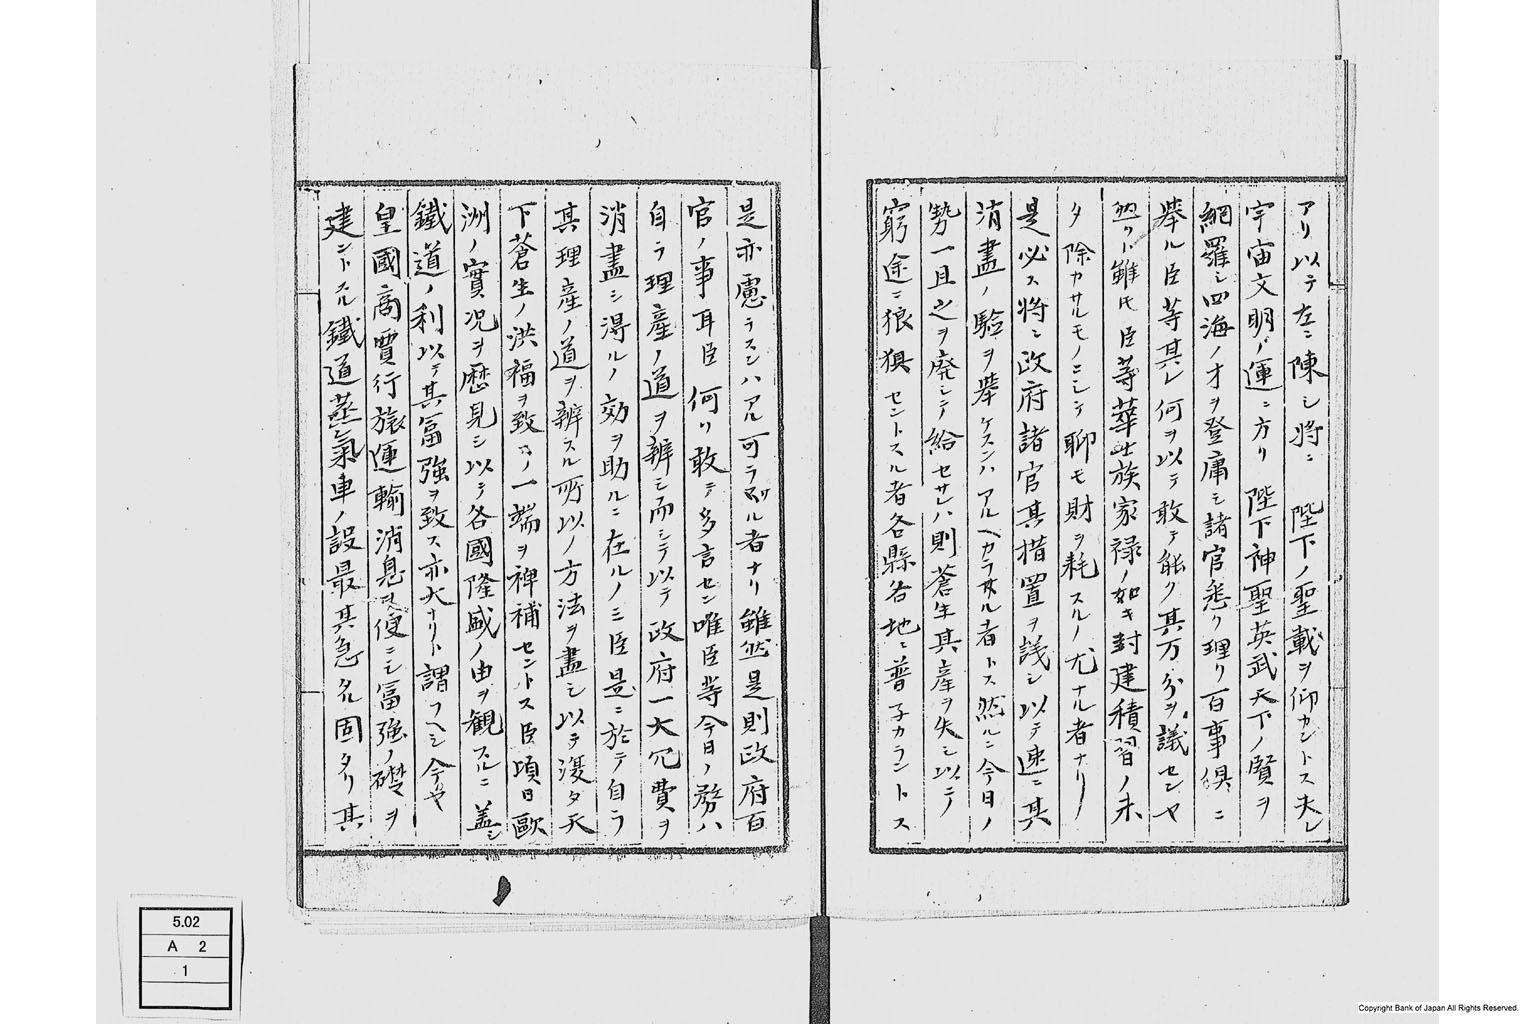 アリ以テ左ニ陳シ将ニ　陛下ノ聖裁ヲ仰カントス夫レ
宇宙文明ノ運ニ方リ　陛下神聖英武天下ノ賢ヲ
網羅シ四海ノ才ヲ登庸シ諸官悉ク理リ百事倶ニ
挙ル臣等其レ何ヲ以テ敢テ能ク其万分ヲ議センヤ
然リト雖𪜈臣等華士族家禄ノ如キ封建積習ノ未
タ除カサルモノニシテ聊モ財ヲ耗スルノ尤ナル者ナリ
是必ス将ニ政府諸官其措置ヲ議シ以テ速ニ其
消盡ノ驗ヲ挙ケスンハアルヘカラサル者トス然ルニ今日ノ
勢一旦之ヲ廃シテ給セサレハ則蒼生其産ヲ失シ以テ
窮途ニ狼狽セントスル者各縣各地ニ普子カラントス
是亦慮ラスンハアル可ラサル者ナリ雖然是則政府百
官ノ事耳臣何リ敢テ多言セン唯臣等今日ノ務ハ
自ラ理産ノ道ヲ辨シ而シテ以テ政府一大冗費ヲ
消盡シ得ルノ効ヲ助ルニ在ルノミ臣是ニ於テ自ラ
其理産ノ道ヲ辨スル所以ノ方法ヲ盡シ以テ漫タ天
下蒼生ノ洪福ヲ致スノ一端ヲ裨補セントス臣頃日歐
洲ノ實況ヲ歴見シ以テ各國隆盛ノ由ヲ觀スルニ盖シ
鐵道ノ利以テ其冨強ヲ致ス亦大ナリト謂フヘシ今ヤ
皇國商賈行旅運輸消息ヲ便ニシ冨強ノ礎ヲ
建ントスル鐵道蒸氣車ノ設最其急タル固タリ其
5.02
A 2
1
Copyright Bank of Japan All Rights Reserved.